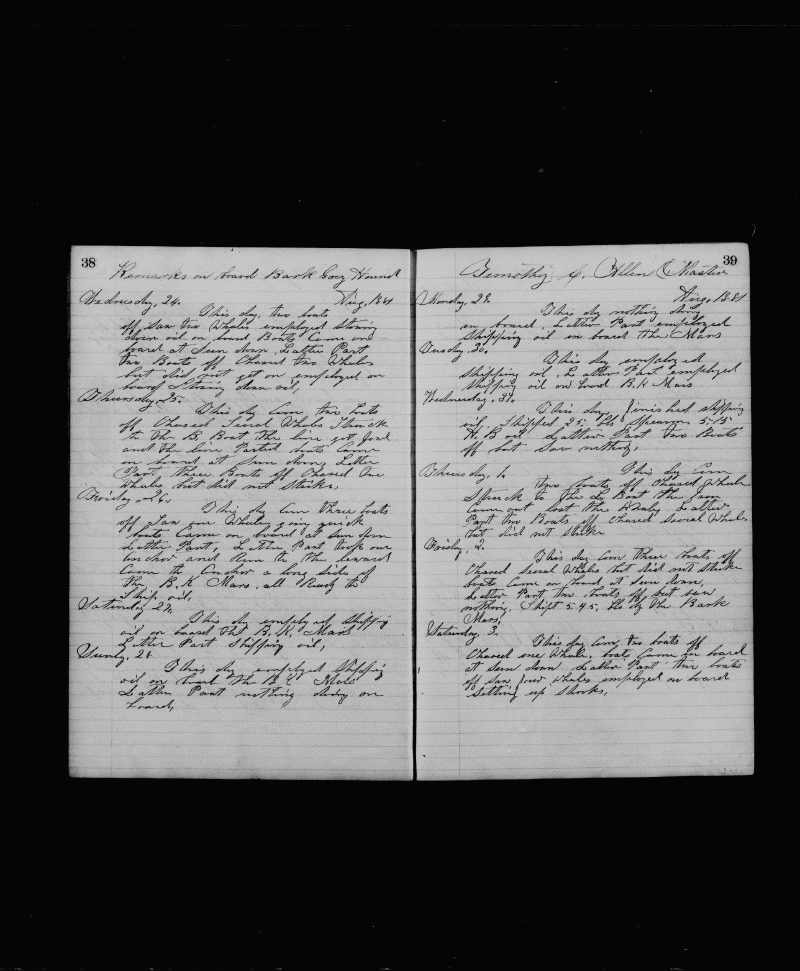 38
Remarks on board Bark Grey Hound
Wednesday, 24. Aug, 1881
This day, two boats
off saw two Whales employed Stowing
down oil on board Boats Came on
board at Sun down, Latter Part
two Boats off Chased two Whales
but did not get on employed on
board Stowing down oil,
Thursday, 25.
This day Com two boats
off Chased Seval Whales Struck
to the B. Boat the line got foul
and the line Parted boats Came
on board at Sun down, Latter
Part three Boats off Chased One
whales but did not Strike,
Friday, 26,
This day Com three boats
off Saw one Whales going quick
boats Came on board at sun down
Latter Part, Latter Part took our
anchor and Run to the leward
Came to Anchor a long side of
the B. K Mars, all Ready to
Ship. oil,
Saturday 27,
This day employed Shipping
oil on board the B. K, Mars
Latter Part Shipping oil,
Sunday, 28
This day employed Shipping
oil on board the B K Mars
Latter Part nothing doing on
board,
39
Timothy C. Allen Master
Monday, 29. Aug, 1881
This day nothing doing
on board, Latter Part employed
Shipping oil on board the Mars
Tuesday, 30,
This day employed
Shipping oil, Latter Part employed
Shipping oil on board B. K Mars
Wednesday, 31,
This day finished shipping
oil, Shipped 25, bbls Spearm 515
H, B oil Latter Part two Boats
off but Saw nothing,
Thursday, 1,
This day Com
two boats, off Chased Whale
Struck to the L. Boat the Iron
Came out lost the Whale, Latter
Part two Boats off Chased Seval Whales
but did not Strike
Friday, 2,
This day Com three boats off
Chased Seval Whales but did not Strike
boats Came on board, at Sun down,
Latter Part two boats off but saw
nothing, Shipt 545, bbls by the Bark
Mars,
Saturday, 3.
This day Com, two boats off
Chased one Whale, boats Came on board
at Sun down Latter Part two boats
off saw four whales employed on board
Setting up Shooks,